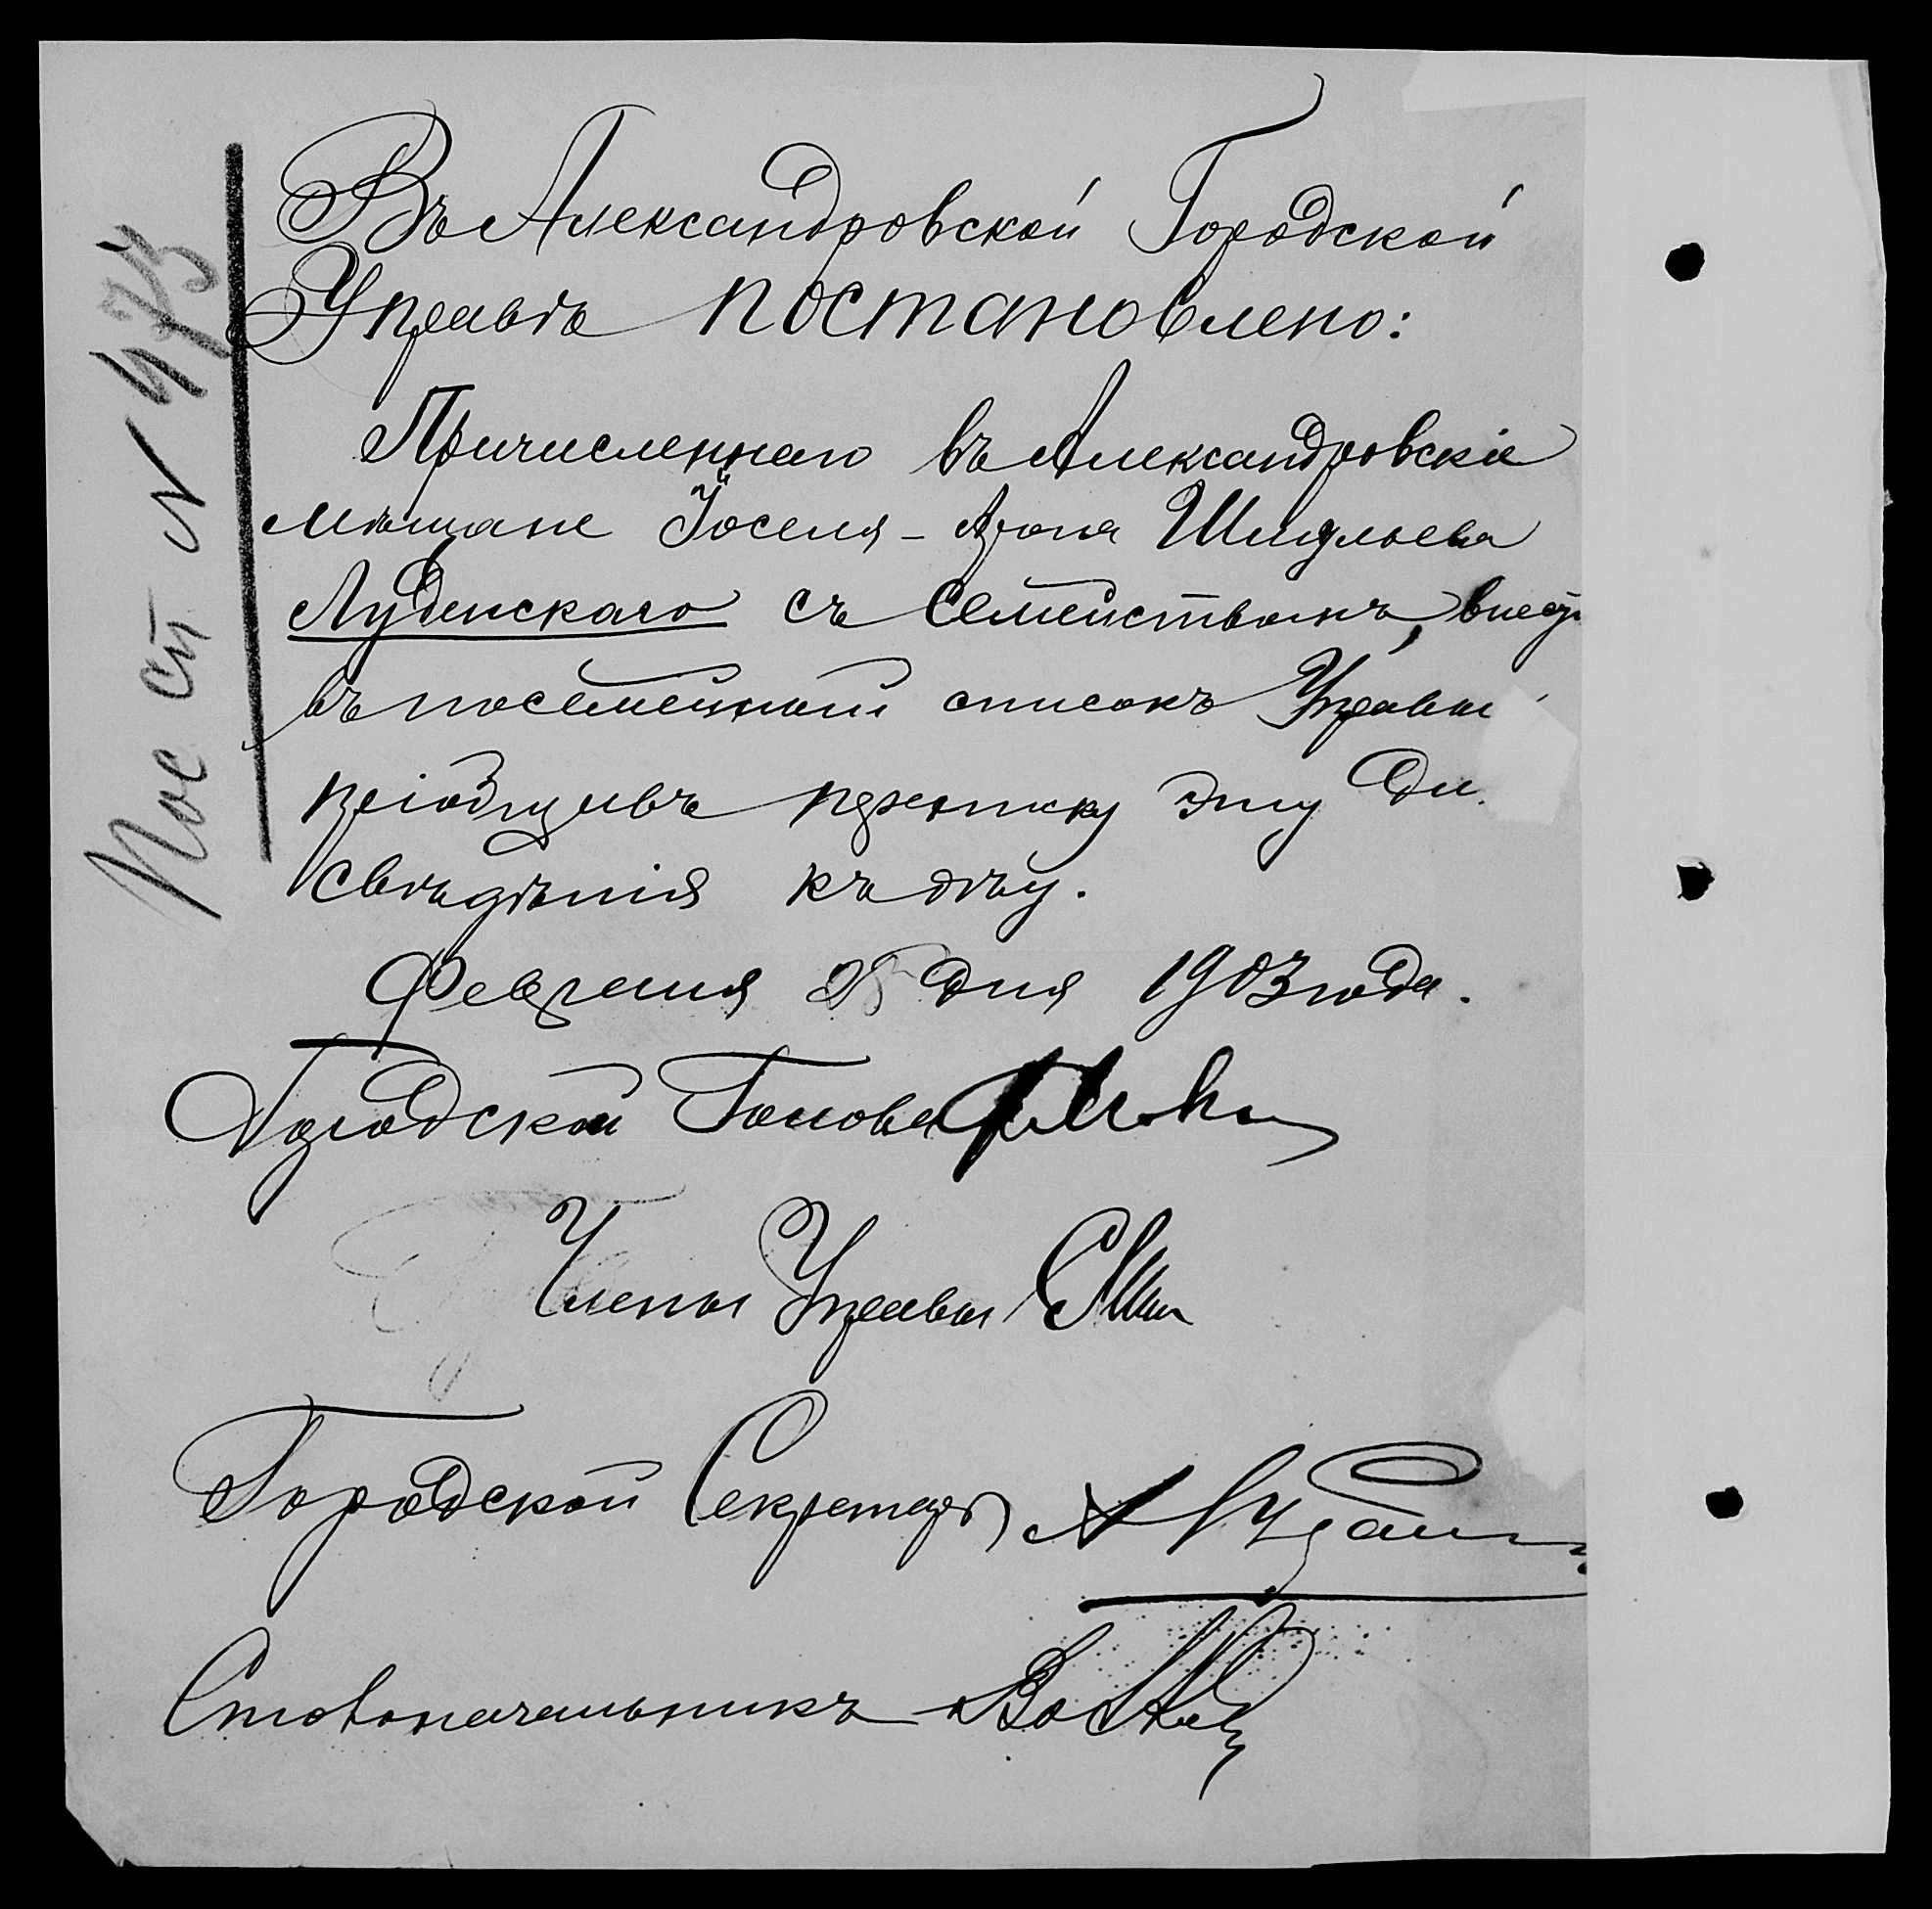 Въ Александровской Городской
Управѣ постановлено:
Причисленнаго въ Александровскіе
мѣщане Іоселя-Арона Шмулева
Лубенскаго съ семействомъ, внест
въ посемейный списокъ Управы
пріобщивъ переписку эту для
свѣдѣнія къ дѣлу.
Февраля 28 дня 1903 года.
Городской Голова
Члены Управы
Городской Секретарь
Столоначальникъ
Пос сп № 473